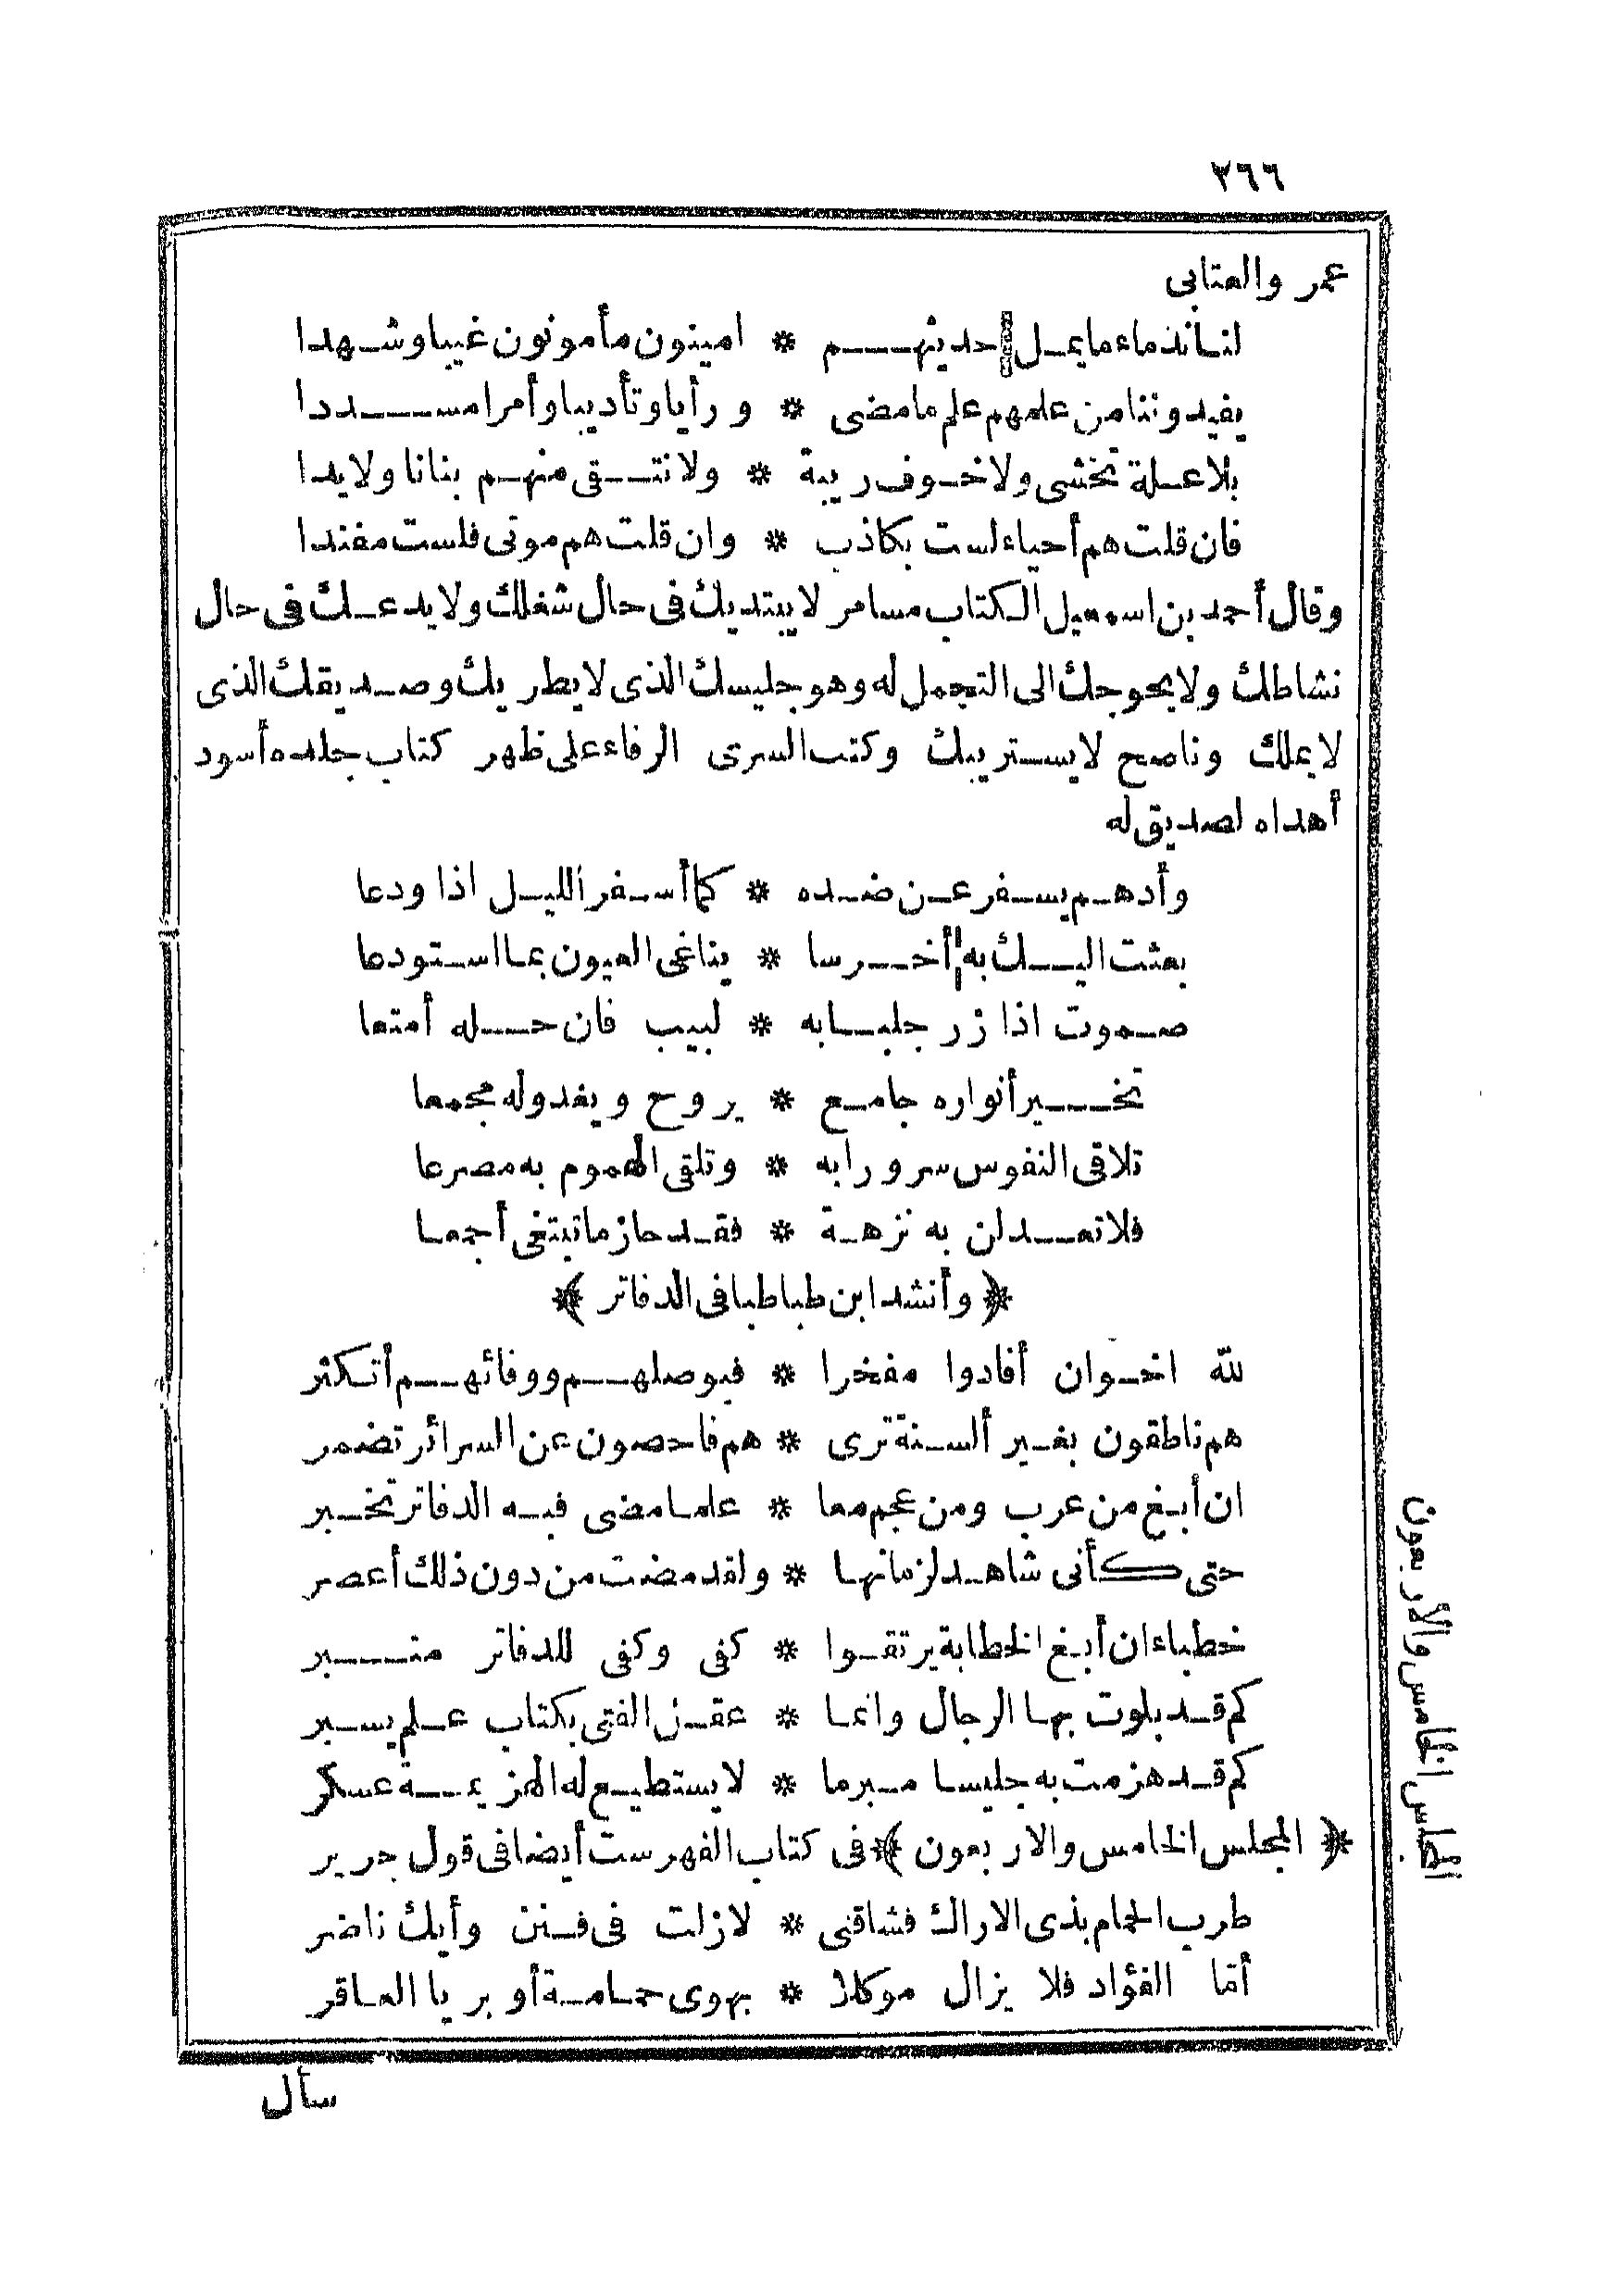 ٢٦٦
عمر والعتابى
لنا ندماء ما يمل حديثهم * امينون مأمونون غيبا وشهدا
يفيدوننا من علمهم علم ما مضى * ورأيا وتأديبا وأمرا مسددا
بلا علة تخشى ولا خوف ريبة * ولا نتقى منهم بنانا ولا يدا
فان قلت هم أحياء لست بكاذب * وان قلت هم موتى فلست مفندا
وقال أحمد بن اسمعيل الكتاب مسامر لا يبتديك فى حال شغلك ولا يدعك فى حال
نشاطك ولا يحوجك الى التجمل له وهو جليسك الذى لا يطريك وصديقك الذى
لا يملك وناصح لا يستريبك وكتب السرى الرفاء على ظهر كتاب جلده أسود
أهداه لصديق له
وأدهم يسفر عن ضده * كما أسفر الليل اذا ودعا
بعثت اليك به أخرسا * يناغى العيون بما استودعا
صموت اذا زر جلبابه * لبيب فان حله أمتعا
تخير أنواره جامع * يروح ويغدو له مجمعا
تلاقى النفوس سرورا به * وتلقى الهموم به مصرعا
فلا تعدلن به نزهة * فقد حاز ما تبتغى أجمعا
﴿ وأنشد ابن طباطبا فى الدفاتر ﴾
لله اخوان أفادوا مفخرا * فبوصلهم ووفائهم أتكثر
هم ناطقون بغير ألسنة ترى * هم فاحصون عن السرائر تضمر
ان أبغ من عرب ومن عجم معا * علما مضى فيه الدفاتر تخبر
حتى كأنى شاهد لزمانها * ولقد مضت من دون ذلك أعصر
خطباء ان أبغ الخطابة يرتقوا * كفى وكفى للدفاتر منبر
كم قد بلوت بها الرجال وانما * عقل الفتى بكتاب علم يسبر
كم قد هزمت به جليسا مبرما * لا يستطيع له الهزيمة عسكر
﴿ المجلس الخامس والاربعون ﴾ فى كتاب الفهرست أيضا فى قول جرير
طرب الحمام بذى الاراك فشاقنى * لا زلت فى فنن وأيك ناضر
أما الفؤاد فلا يزال موكلا * بهوى حمامة أو بريا العاقر
سأل
المجلس الخامس والأربعون